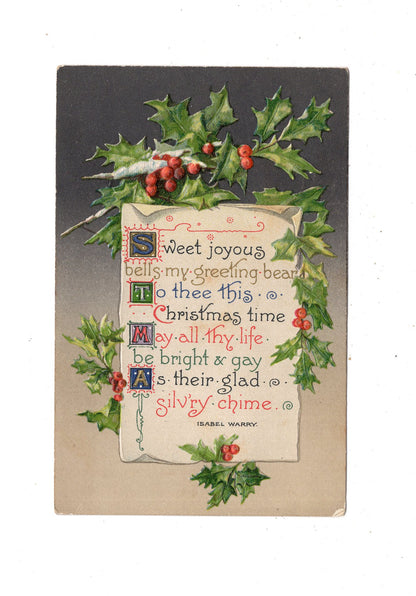 Sweet joyous
bells·my·greeting·bear
To thee this
Christmas time
May all thy life
be bright & gay
As their glad
silv'ry chime.
ISABEL WARRY.